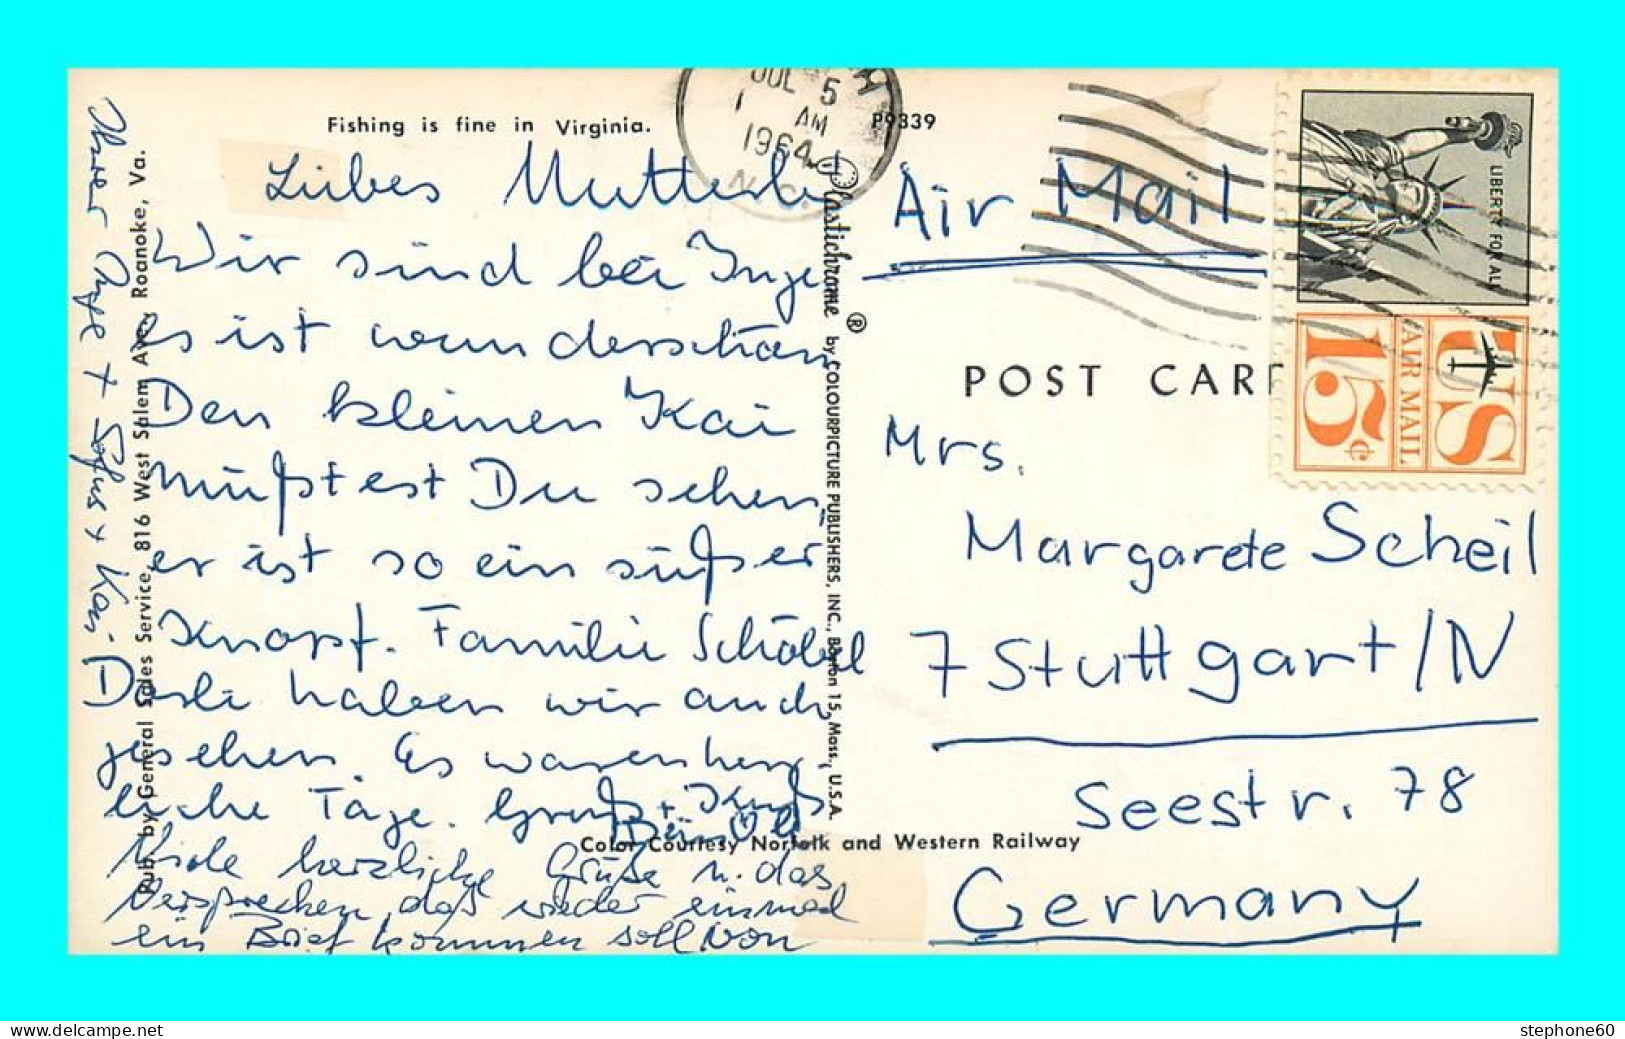 Fishing is fine in Virginia.
P9339
JUL 5
1 AM
1964
N.C.
Liebes Mutterle
Wir sind bei Inge
es ist wunderschön
Den kleinen Kai
müßtest Du sehen,
er ist so ein süßer
Knopf. Familie Schöbel
Dorle haben wir auch
gesehen. Es waren herr
liche Tage. Gruß + Kuß
Viele herzliche Grüße u. das
Versprechen, daß wieder einmal
ein Brief kommen soll von
Ihrer Inge + + Kai
Pub. by General Sales Service, 816 West Salem Ave., Roanoke, Va.
Plastichrome ® by COLOURPICTURE PUBLISHERS, INC., Boston 15, Mass., U.S.A.
Color Courtesy Norfolk and Western Railway
Air Mail
POST CARD
LIBERTY FOR ALL
US
AIR MAIL
15¢
Mrs.
Margarete Scheil
7 Stuttgart/N
Seestr. 78
Germany
www.delcampe.net
stephone60